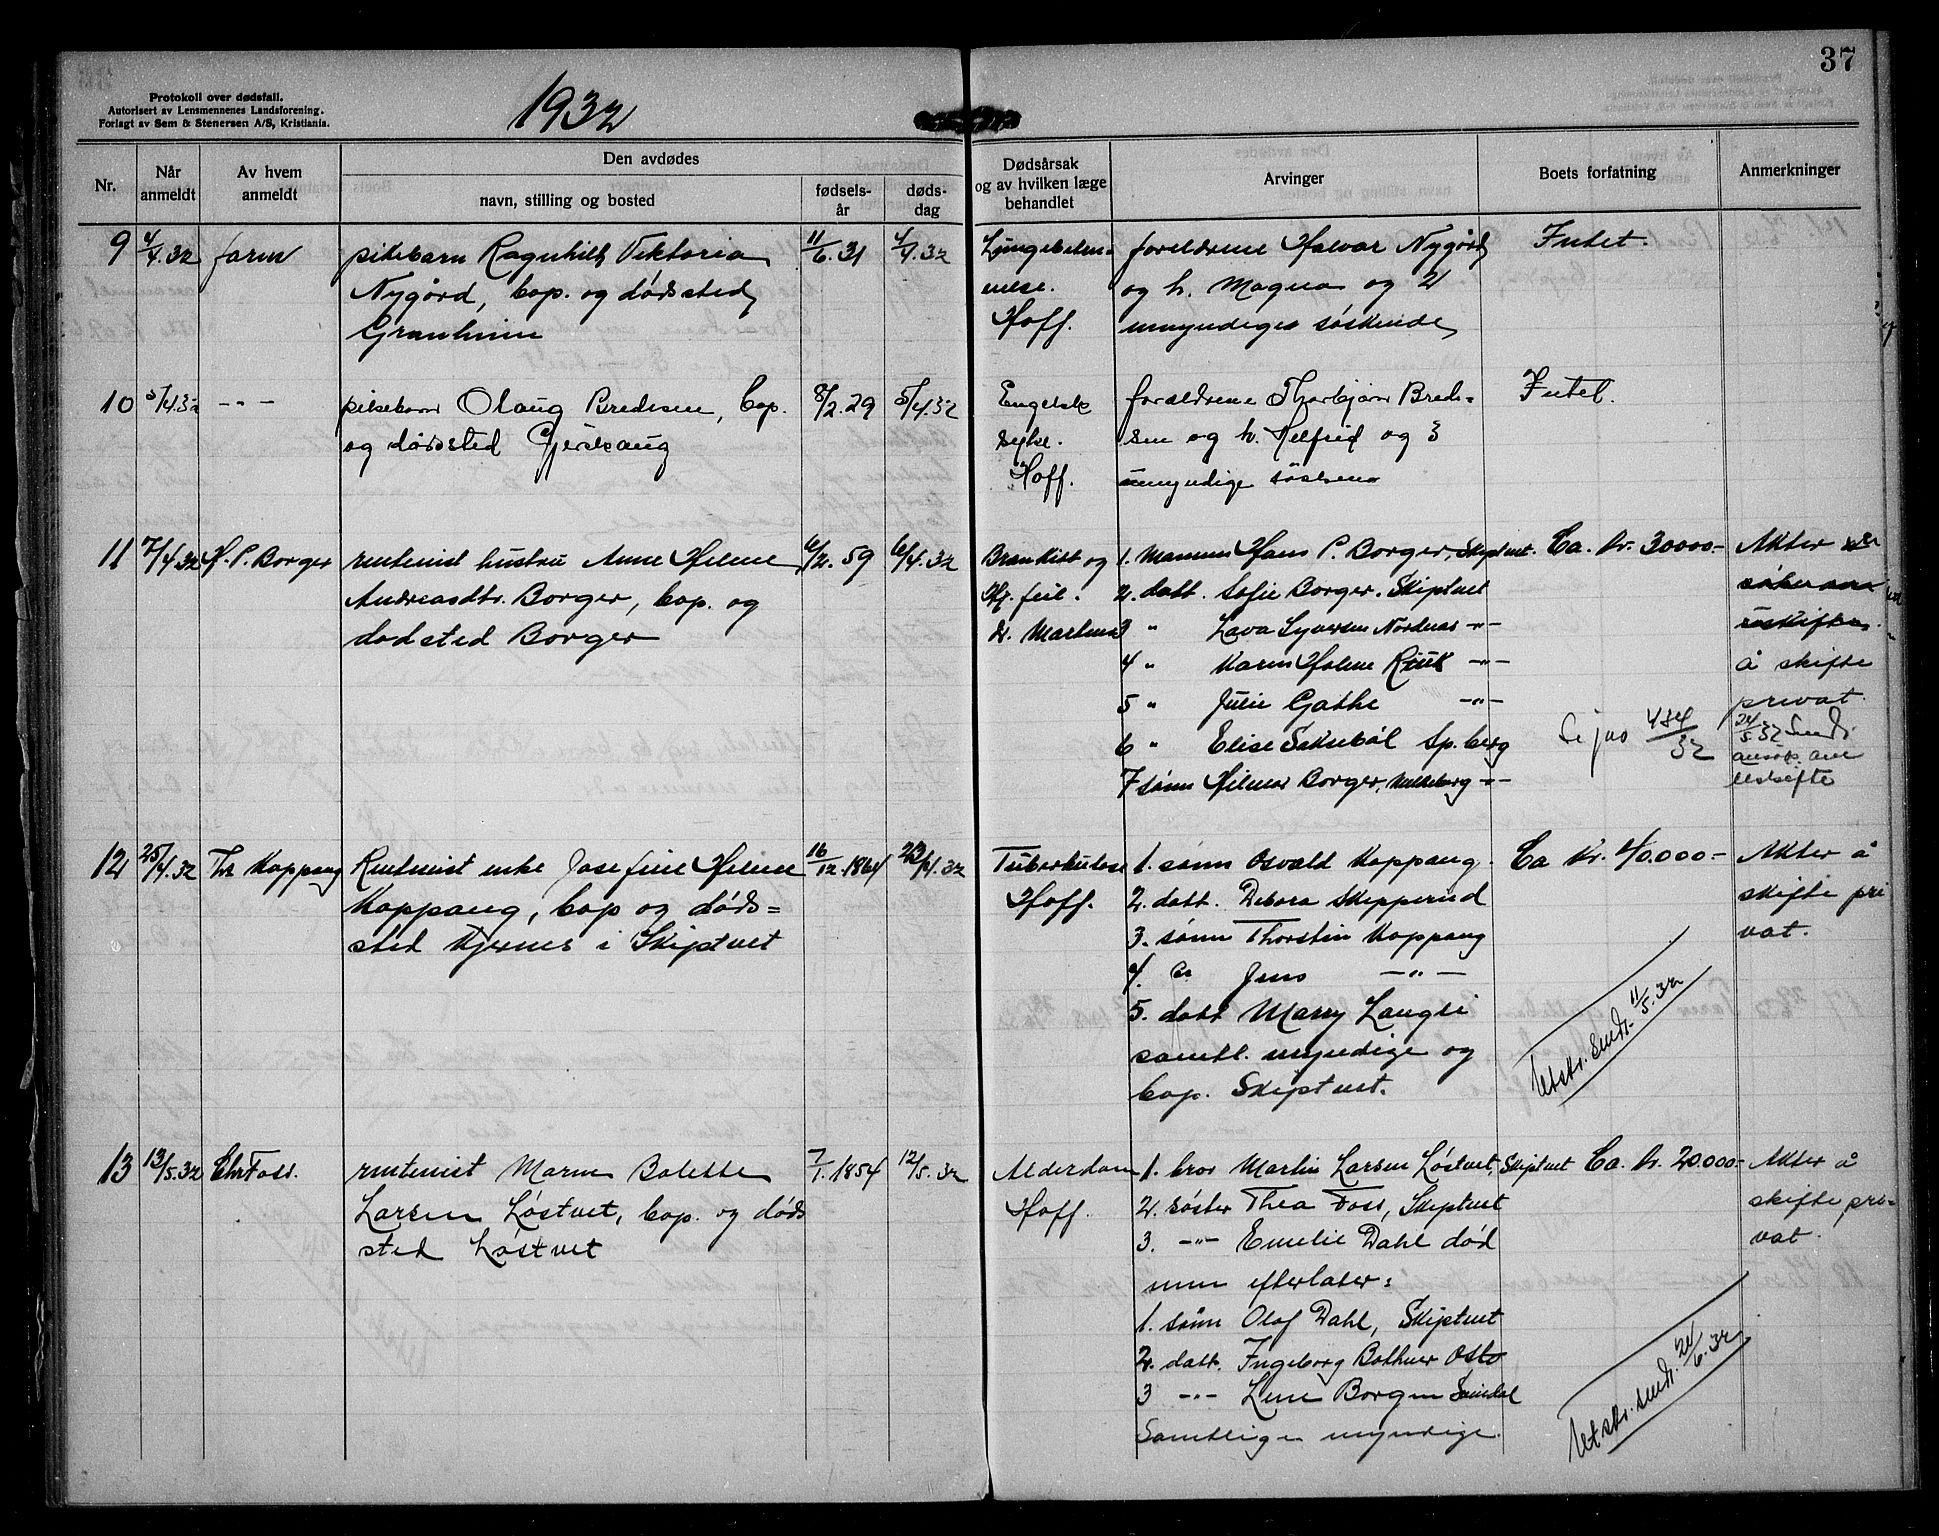 37
Protokoll over dødsfall.
Autorisert av Lensmennenes Landsforening.
Forlagt av Sem & Stenersen A/S, Kristiania.
1932
Nr.
Når anmeldt
Av hvem anmeldt
Den avdødes
navn, stilling og bosted
fødsels-år
døds-dag
Dødsårsak og av hvilken læge behandlet
Arvinger
Boets forfatning
Anmerkninger
9 4/4.32 faren
pikebarn Ragnhild Viktoria
Nygård, bop. og dødsted
Granheim
11/6.31 4/4.32
Lungebeten-
nelse.
Hoff.
foreldrene Halvar Nygård
og h. Magna og 2
umyndige søskende
Intet.
10 5/4.32 -"-
pikebarn Olaug Bredesen, bop.
og dødsted Gjerskaug
8/2.29 5/4.32
Engelsk
syke.
Hoff.
foreldrene Thorbjørn Brede-
sen og h. Helfrid og 3
umyndige søsken
Intet.
11 7/4.32 H. P. Borger
rentenist hustru Anne Helene
Andreasdtr. Borger, bop. og
dødsted Borger
6/2.59 6/4.32
Bronkitt og
Hj. feil.
1. Mannen Hans P. Borger, Skiptvet.
2. datt. Sofie Borger. Skiptvet
3 " Lava Syversen Nordnæs -"-
4 " Karen Holene -"-
5 " Julie Gathe -"-
6 " Elise Sp.berg
7 sønn Hilmar Borger, -"-
Ca. kr. 30000.-
Sejas 484/32
Akter
å skifte
privat.
24/5.32 Sendt
12 25/4.32 Th. Koppang
Rentenist enke Josefine Helene
Koppang, bop og døds-
sted Kjernes i Skiptvet
16/12.1864 23/4.32
Tuberkulose
Hoff.
1. sønn Osvald Koppang.
2. datt. Debora Skipperud
3. sønn Thorstein Koppang
4. " Jens -"-
5. datt Marry Langli
samtl. myndige og
bop. Skiptvet.
Ca Kr. 40.000.-
Utskr. sendt. 11/5.32
Akter å
skifte pri
vat.
13 13/5.32 Chr Foss.
rentenist Maren Bolette
Larsen Løstvet, bop. og døds
sted Løstvet
7/1.1854 12/5.32
Alderdom
Hoff.
1. bror Martin Larsen Løstvet, Skiptvet
2. søster Thea Foss, Skiptvet
3. -"- Emelie Dahl død
men efterlater:
1. sønn Olaf Dahl, Skiptvet
2. datt. Ingeborg Bothner Oslo
3 -"- Lene Borgen
Samtlige myndige.
Ca. kr. 20.000-
Utskr. sendt. 24/6.32
Akter å
skifte pri-
vat.